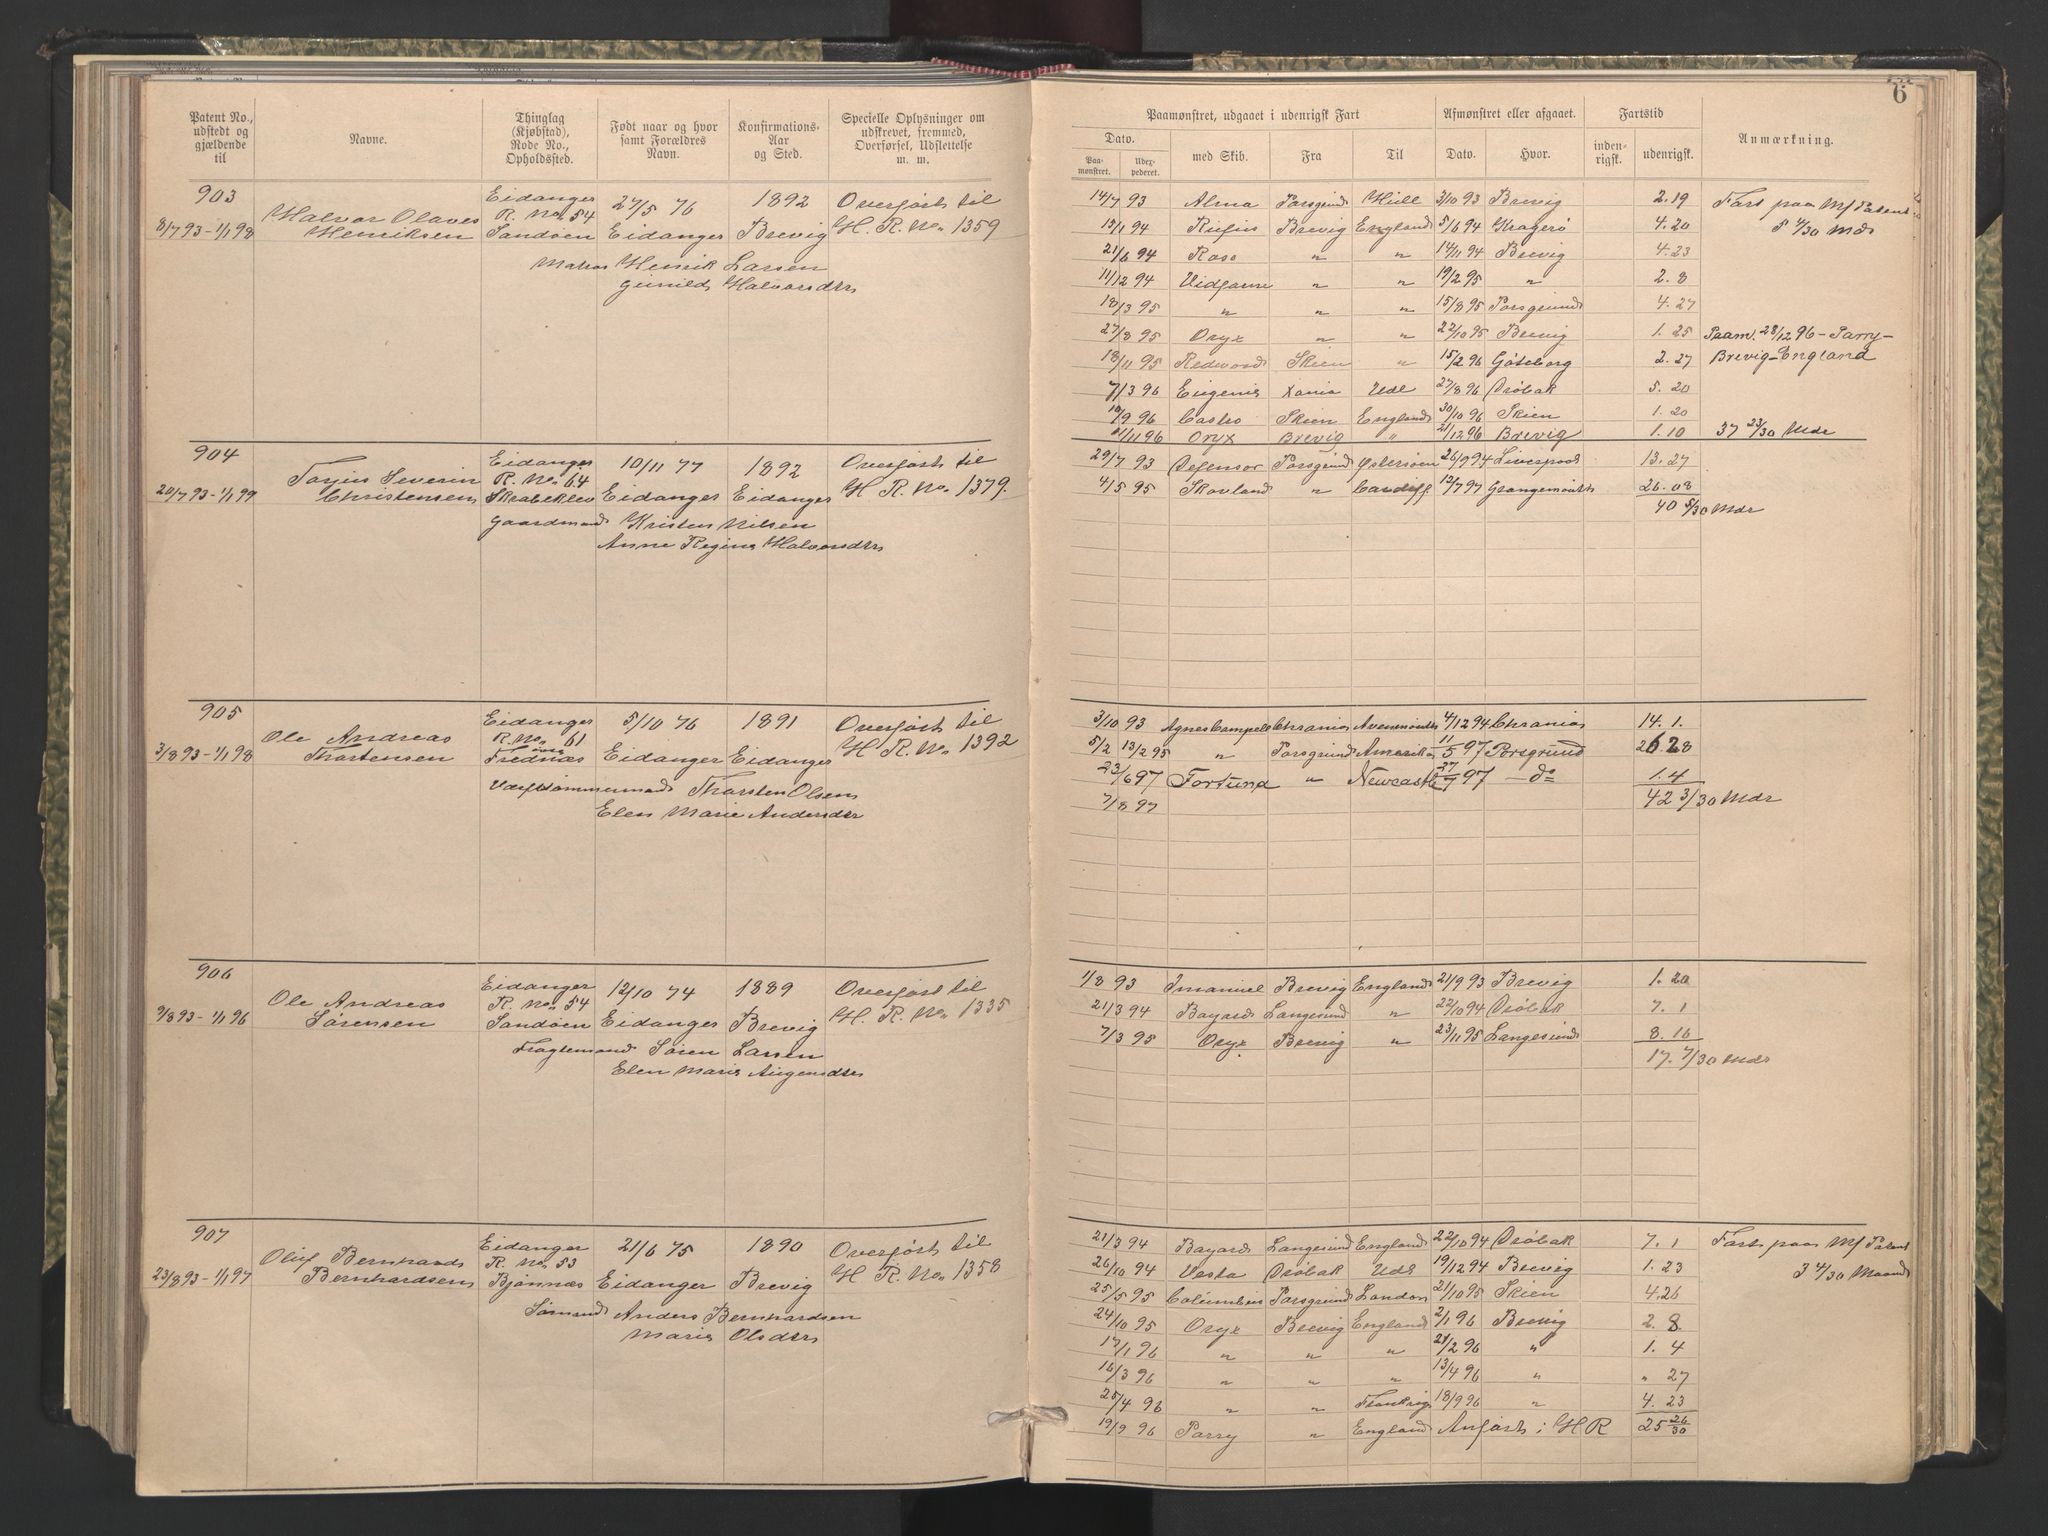 Patent No., udstedt og gjældende til
Navne.
Thinglag (Kjøbstad), Rode No., Opholdssted.
Født naar og hvor samt Forældres Navn.
Konfirmations-Aar og Sted.
Specielle Oplysninger om udskrevet, fremmed, Overførsel, Udslettelse m. m.
903
8/7 93 - 1/1 98
Halvor Olaves
Henriksen
Eidanger
R. No. 54
Sandøen
27/5 76
Eidanger
1892
Brevig
Overført til
H. R. No. 1359
Matros Henrik Larsen
Gunild Halvorsdtr
904
20/7 93 - 1/1 99
Severin
Christensen
Eidanger
R. No. 64
Skrabeklev
10/11 77
Eidanger
1892
Eidanger
Overført til
H. R. No. 1379.
Gaardmand Kristen Nilsen
Anne Regine Halvorsdtr
905
3/8 93 - 1/1 98
Ole Andreas
Thorstensen
Eidanger
R. No. 61
Frednæs
5/10 76
Eidanger
1891
Eidanger
Overført til
H. R. No. 1392
Thorsten Olsen
Elen Marie Andersdtr
906
9/8 93 - 1/1 96
Ole Andreas
Sørensen
Eidanger
R. No. 54
Sandøen
12/10 74
Eidanger
1889
Brevig
Overført til
H. R. No. 1335
Fragtemand Søren Larsen
Elen Marie
907
23/8 93 - 1/1 97
Oluf Bernhard
Bernhardsen
Eidanger
R. No. 53
Bjønnæs
21/6 75
Eidanger
1890
Brevig
Overført til
H. R. No. 1358
Sømand Anders Bernhardsen
Maria Olsdtr
6
Paamønstret, udgaaet i udenrigsk Fart
Afmønstret eller afgaaet.
Fartstid
Anmærkning.
Dato.
Paa-mønstret.
Udex-pederet.
med Skib.
Fra
Til
Dato.
Hvor.
inden-rigsk.
udenrigsk.
14/7 93 Alma Porsgrund Hull 3/10 93 Brevig 2.19 Fart paa Mf Patent
15/1 94 Rufus Brevig England 5/6 94 Kragerø 4.20 5 4/30 Mdr
21/6 94 Rosa " " 14/11 94 Brevig 4.23
11/12 94 Vidfarne " " 19/2 95 " 2.8
18/3 95 " " " 15/8 95 Porsgrund 4.27
27/8 95 Oryx " " 22/10 95 Brevig 1.25 Paam. 28/12 96 - Parry -
18/11 95 Redwood Skien " 15/2 96 Göteborg 2.27 Brevig - England
7/3 96 Eugenie Xania Udl 27/8 96 Drøbak 5.20
10/9 96 Castro Skien England 30/10 96 Skien 1.20
11/11 96 Oryx Brevig " 21/12 96 Brevig 1.10 37 23/30 Mdr
29/7 93 Defensor Porsgrund Østersøen 26/9 94 Liverpool 13.27
4/5 95 Skovland " Cardiff 12/7 97 Grangemouth 26.08
40 5/30 Mdr
3/10 93 Agnes Campel Chrania Avonmouth 4/12 94 Chrania 14.1.
5/2 13/2 95 " Porsgrund Amerika 11/5 97 Porsgrund 26 28
23/6 97 Fortuna " Newcastle 27/7 97 - do 1.4
7/8 97 42 3/30 Mdr
1/8 93 Imanuel Brevig England 21/9 93 Brevig 1.20
21/3 94 Bayard Langesund " 22/10 94 Drøbak 7.1
7/3 95 Oryx Brevig " 23/11 95 Langesund 8.16
17. 7/30 Mdr
21/3 94 Bayard Langesund England 22/10 94 Drøbak 7.1 Fart paa Mf Patent
26/10 94 Vesta Drøbak Udl 19/12 94 Brevig 1.23 3 4/30 Maaned
25/5 95 Columbus Porsgrund London 21/10 95 Skien 4.26
24/10 95 Oryx Brevig England 2/1 96 Brevig 2.8
17/1 96 " " " 21/2 96 " 1.4
16/3 96 " " " 13/4 96 " " 27
25/4 96 " " Frankrig 18/9 96 " 4.23
19/9 96 Parry " England Anført i H R 25 26/30